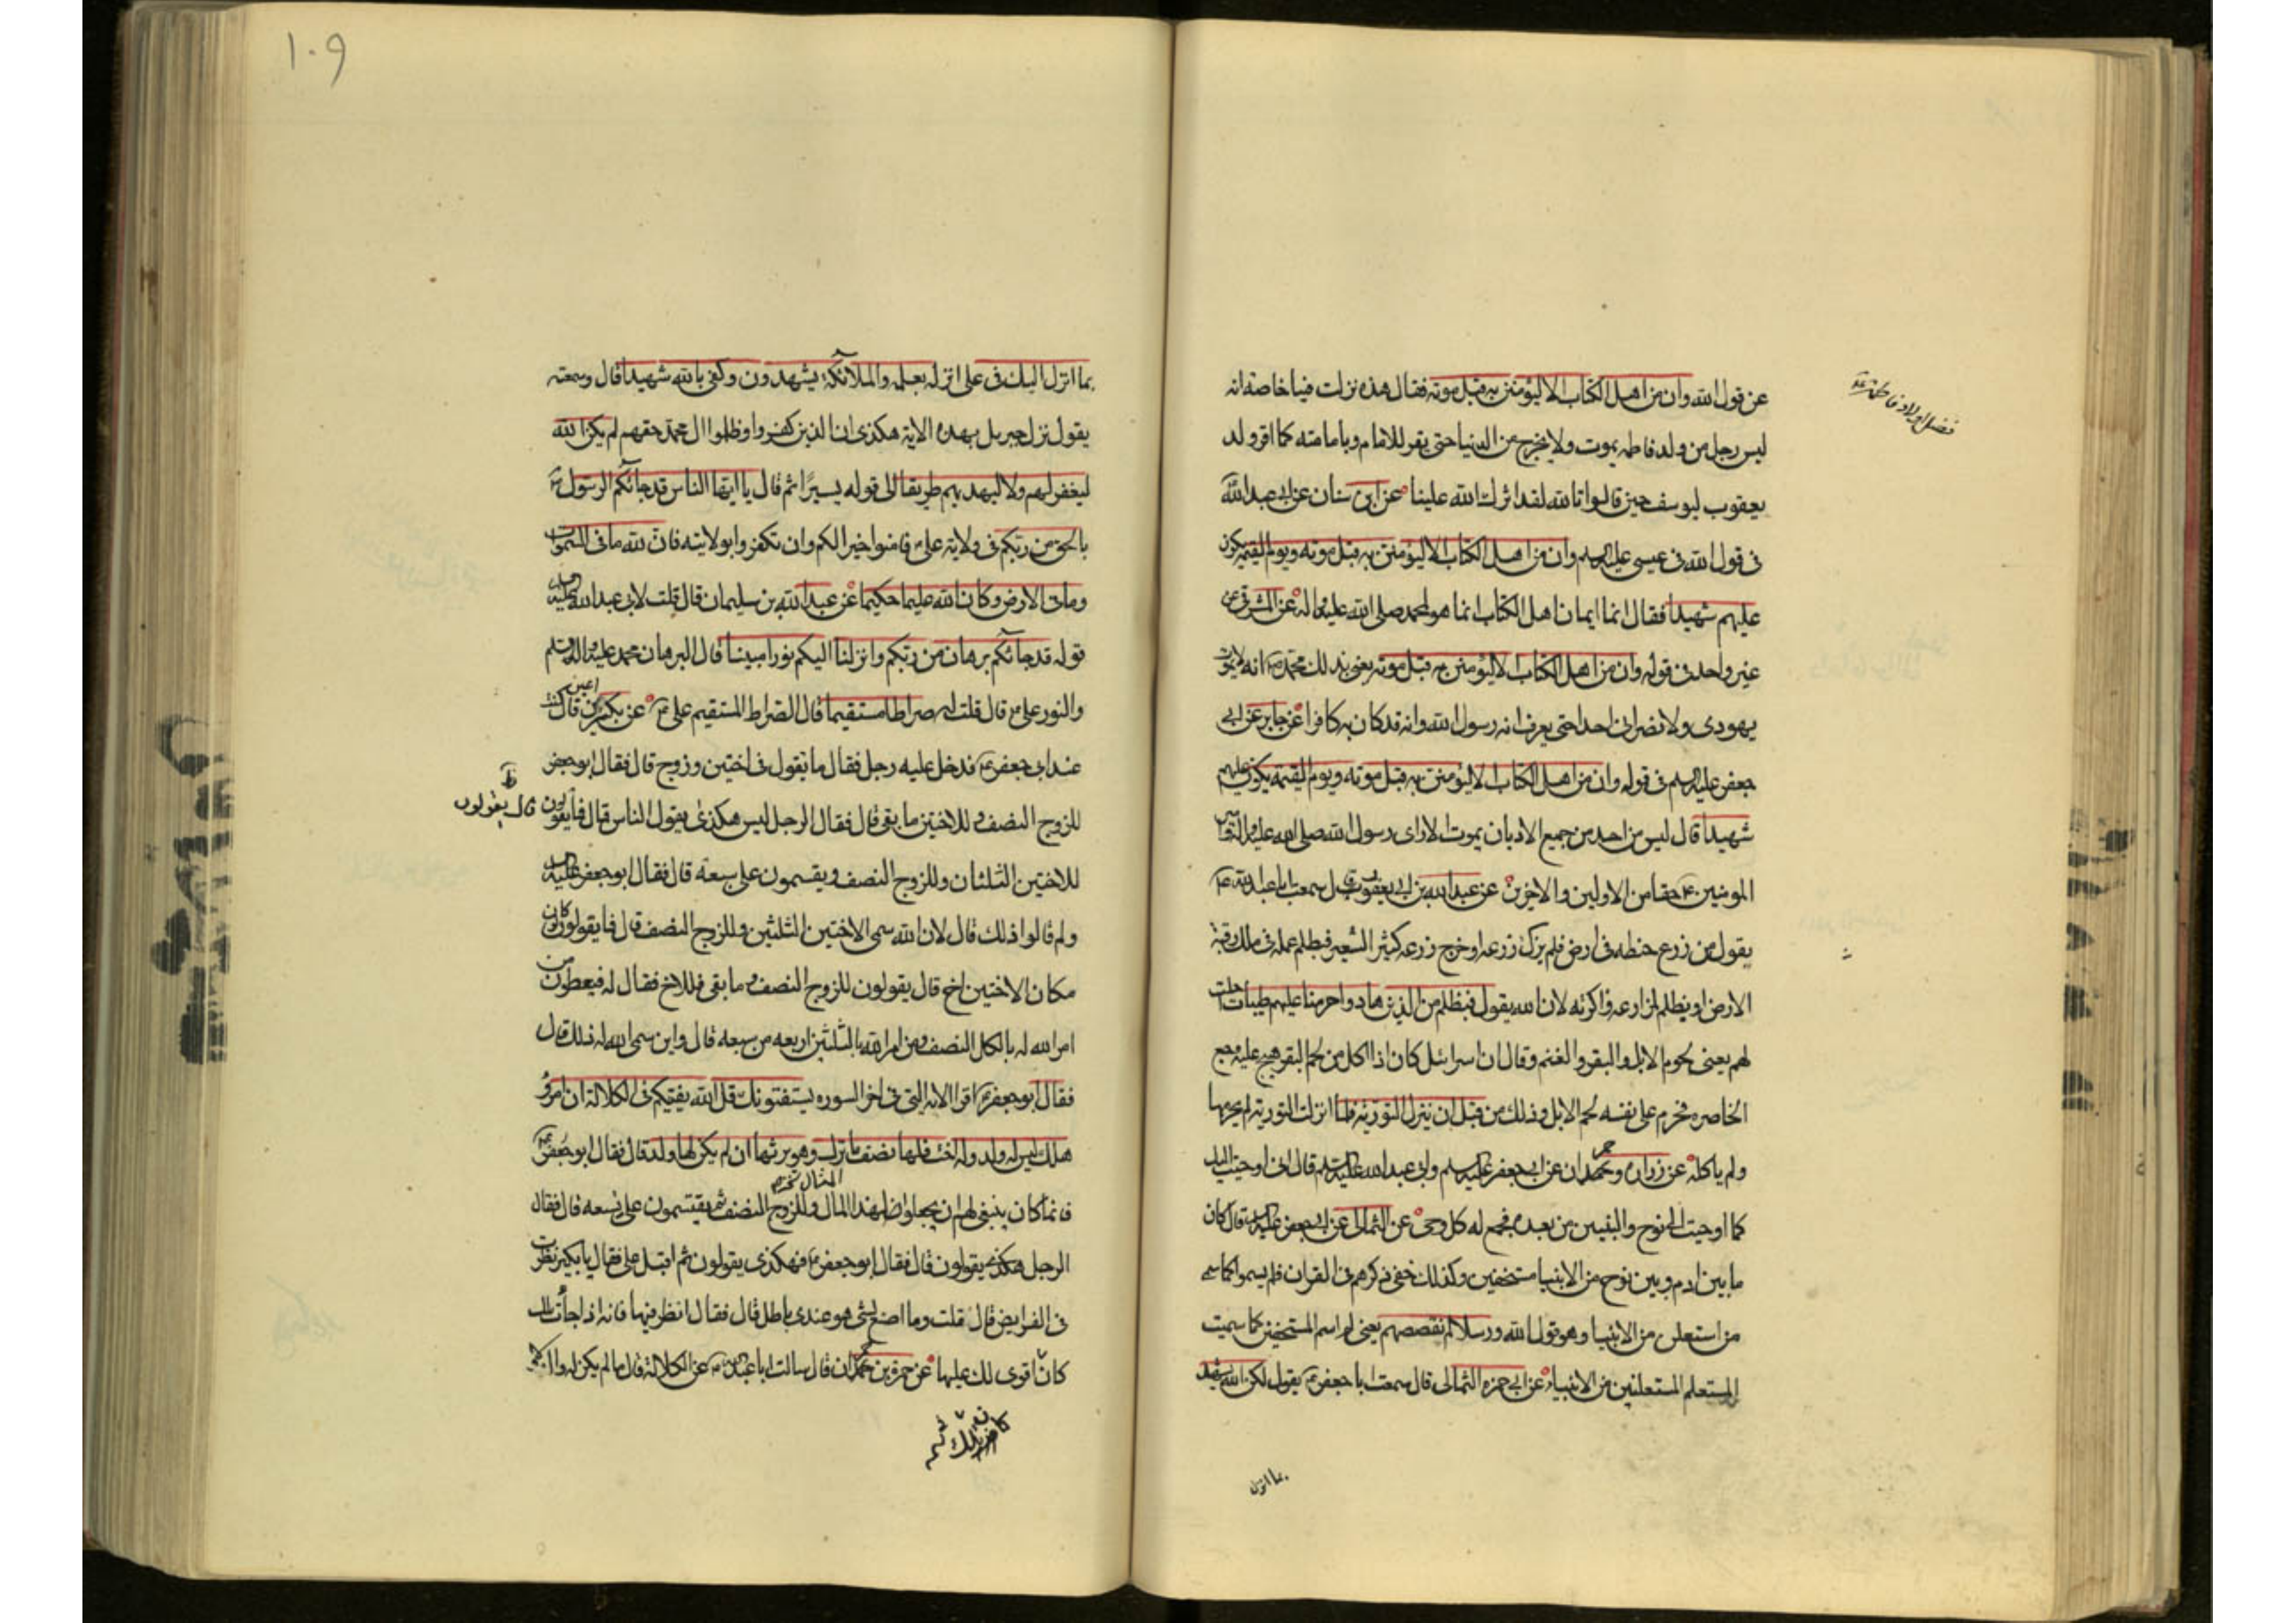 فضل اولاد فاطمة
عن قول الله وان من اهل الكتاب الا ليؤمنن به قبل موته فقال هذه نزلت فينا خاصة انه
ليس رجل من ولد فاطمه يموت ولا يخرج من الدنيا حتى يقر للامام وبامامته كما اقر ولد
يعقوب ليوسف حين قالوا تالله لقد اثرك الله علينا عن ابن سنان عن ابى عبد الله
فى قول الله فى عيسى عليه السلم وان من اهل الكتاب الا ليؤمنن به قبل موته ويوم القيمة يكون
عليهم شهيدا فقال انما ايمان اهل الكتاب انما هو لمحمد صلى الله عليه واله عن المشرقى عن
غير واحد فى قوله وان من اهل الكتاب الا ليؤمنن به قبل موته يعنى بذلك محمد انه لا يموت
يهودى ولا نصرانى احدا حتى يعرف انه رسول الله وانه قد كان به كافرا عن جابر عن ابى
جعفر عليه السلم فى قوله وان من اهل الكتاب الا ليؤمنن به قبل موته ويوم القيمة يكون عليهم
شهيدا قال ليس من احد من جميع الاديان يموت الا راى رسول الله صلى الله عليه واله
المومنين حقا من الاولين والاخرين عن عبد الله بن ابى يعفور قال سمعت ابا عبد الله
يقول من زرع حنطه فى ارض فلم يزك زرعه او خرج زرعه كثير الشعير فبظلم عمله فى ملك رقبة
الارض او بظلم لمزارعه واكرته لان الله يقول فبظلم من الذين هادوا حرمنا عليهم طيبات احلت
لهم يعنى لحوم الابل والبقر والغنم وقال ان اسرائيل كان اذا اكل من لحم البقر هيج عليه وجع
الخاصره فحرم على نفسه لحم الابل وذلك من قبل ان ينزل التورية فلما انزلت التورية لم يحرمها
ولم ياكله عن زرارة وحمران عن ابى جعفر عليه السلم وابى عبد الله عليه السلم قال انى اوحيت اليك
كما اوحيت الى نوح والنبيين من بعده فجمع له كل وحى عن الثمالى عن ابى جعفر عليه السلم قال كان
ما بين ادم وبين نوح من الانبيا مستخفين وكذلك خفى ذكرهم فى القران فلم يسموا كما سمى
من استعلن من الانبيا وهو قول الله ورسلا لم نقصصهم يعنى لم اسم المستخفين كما سميت
المستعلنين من الانبياء عن ابى حمزه الثمالى قال سمعت ابا جعفر يقول لكن الله يشهد
بما انزل
١٠٩
بما انزل اليك فى على انزله بعلمه والملائكة يشهدون وكفى بالله شهيدا قال وسمعته
يقول نزل جبريل بهذه الاية هكذى ان الذين كفروا وظلموا ال محمد حقهم لم يكن الله
ليغفر لهم ولا ليهديهم طريقا الى قوله يسيرا ثم قال يا ايها الناس قد جائكم الرسول
بالحق من ربكم فى ولاية على فامنوا خيرا لكم وان تكفروا بولايته فان لله ما فى السموات
وما فى الارض وكان الله عليما حكيما عن عبد الله بن سليمان قال قلت لابى عبد الله عليه
قوله قد جائكم برهان من ربكم وانزلنا اليكم نورا مبينا قال البرهان محمد عليه واله السلم
والنور على قال قلت له صراطا مستقيما قال الصراط المستقيم على عن بكير بن اعين قال كنت
عند ابى جعفر فدخل عليه رجل فقال ما تقول فى اختين وزوج قال فقال ابو جعفر
للزوج النصف وللاختين ما بقى قال فقال الرجل ليس هكذى يقول الناس قال فما يقولون
قال يقولون
للاختين الثلثان وللزوج النصف ويقسمون على سبعة قال فقال ابو جعفر عليه
ولم قالوا ذلك قال لان الله سمى الاختين الثلثين وللزوج النصف قال فما يقولون لو كان
مكان الاختين اخ قال يقولون للزوج النصف وما بقى فللاخ فقال له فيعطون من
امر الله له بالكل النصف ومن امر الله بالثلثين اربعه من سبعه قال واين سمى الله له ذلك قال
فقال ابو جعفر اقرا الاية التى فى اخر السوره يستفتونك قل الله يفتيكم فى الكلالة ان امرؤ
هلك ليس له ولد وله اخت فلها نصف ما ترك وهو يرثها ان لم يكن لها ولد قال فقال ابو جعفر
فانما كان ينبغى لهم ان يجعلوا لهذا المال وللزوج النصف ثم يقتسمون على تسعه قال فقال
الرجل هكذى يقولون قال فقال ابو جعفر فهكذى يقولون ثم اقبل على فقال يا بكير نظرت
فى الفرايض قال قلت وما اصنع بشى هو عندى باطل قال فقال انظر فيها فانه اذا جائت تلك
كان اقوى لك عليها عن حمزة بن حمران قال سالت ابا عبد الله عن الكلالة قال ما لم يكن له والد